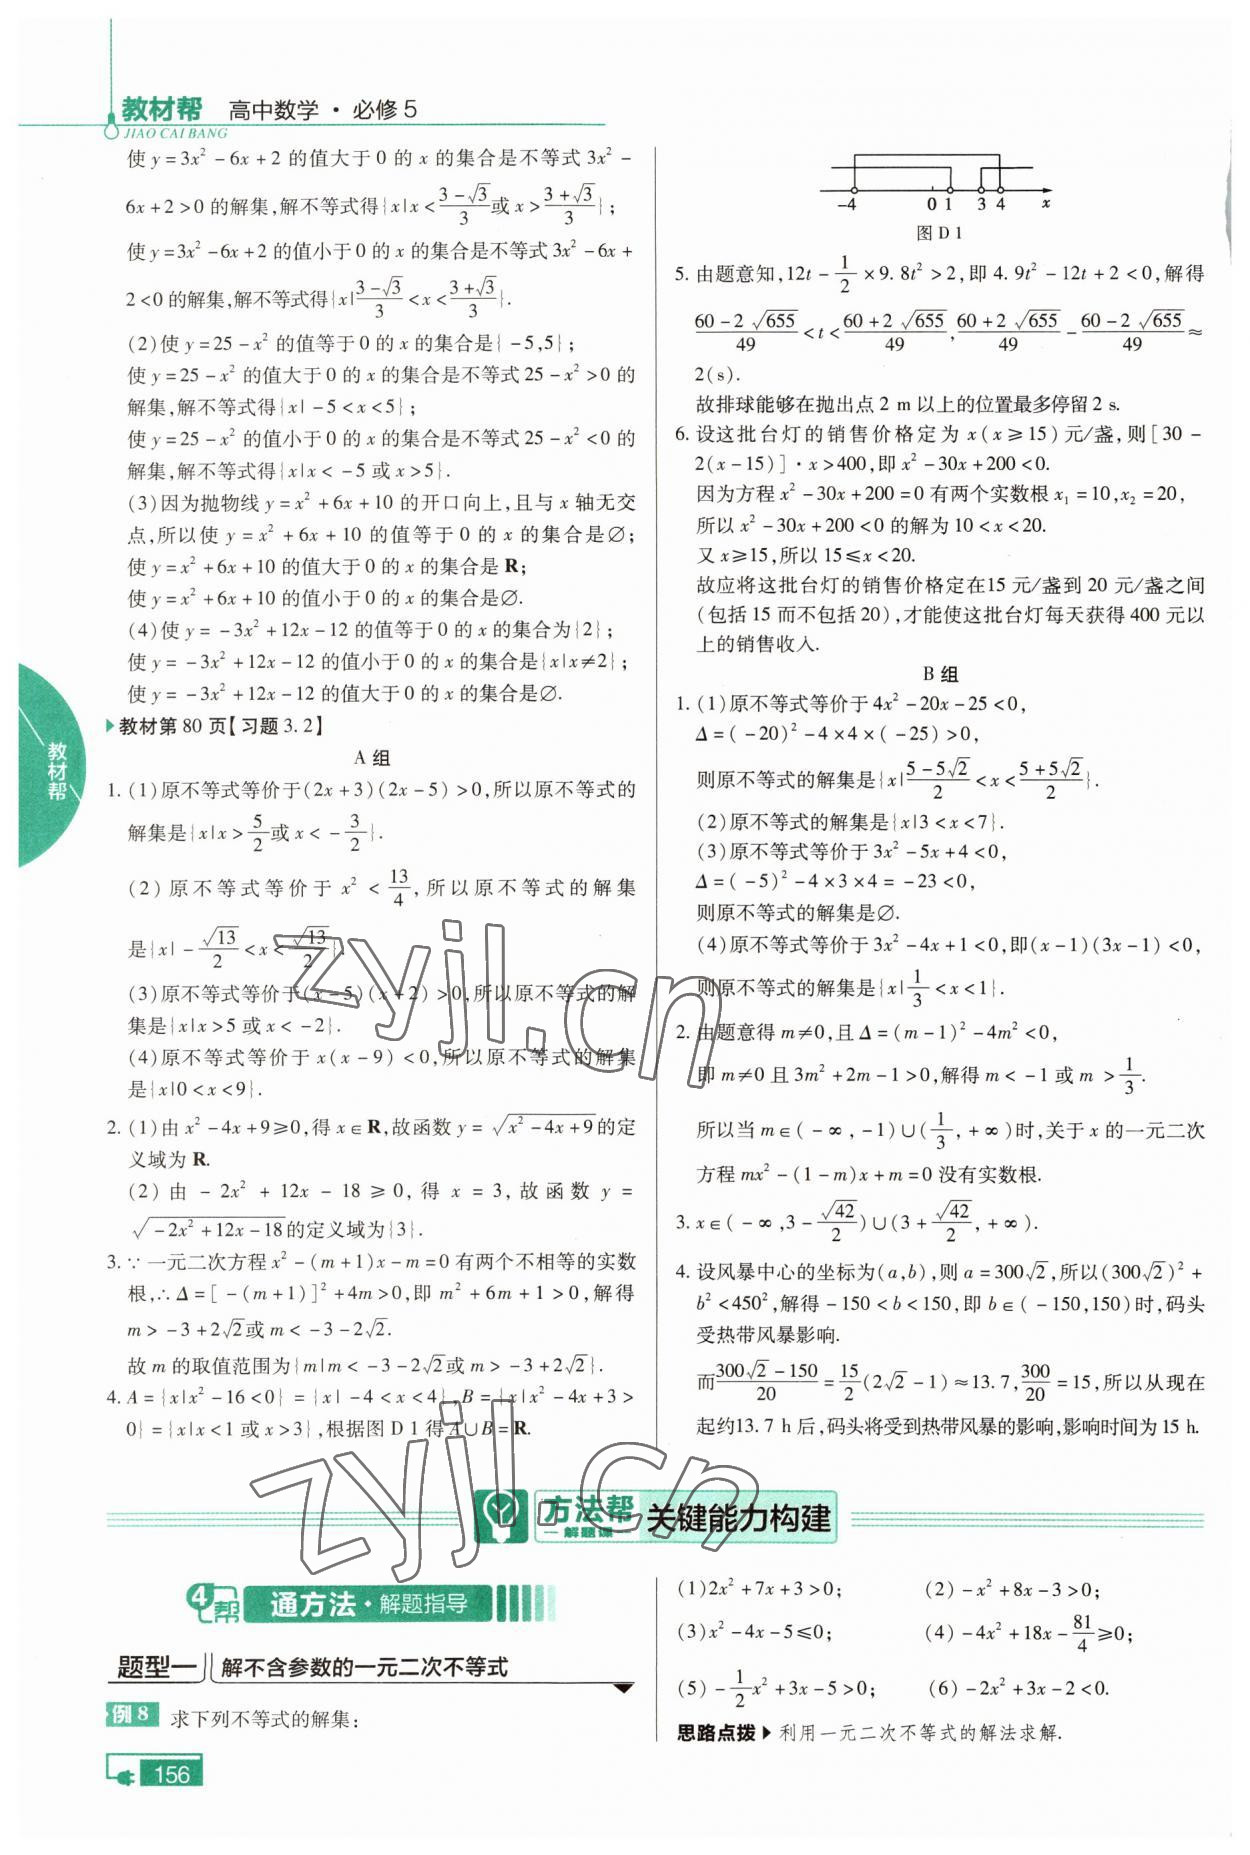 教材帮 高中数学·必修5
JIAO CAI BANG
使 y=3x²-6x+2 的值大于 0 的 x 的集合是不等式 3x²-
6x+2>0 的解集,解不等式得{x|x<(3-√3)/3 或 x>(3+√3)/3};
使 y=3x²-6x+2 的值小于 0 的 x 的集合是不等式 3x²-6x+
2<0 的解集,解不等式得{x|(3-√3)/3<x<(3+√3)/3}.
(2)使 y=25-x² 的值等于 0 的 x 的集合是{-5,5};
使 y=25-x² 的值大于 0 的 x 的集合是不等式 25-x²>0 的
解集,解不等式得{x|-5<x<5};
使 y=25-x² 的值小于 0 的 x 的集合是不等式 25-x²<0 的
解集,解不等式得{x|x<-5 或 x>5}.
(3)因为抛物线 y=x²+6x+10 的开口向上,且与 x 轴无交
点,所以使 y=x²+6x+10 的值等于 0 的 x 的集合是∅;
使 y=x²+6x+10 的值大于 0 的 x 的集合是 R;
使 y=x²+6x+10 的值小于 0 的 x 的集合是∅.
(4)使 y=-3x²+12x-12 的值等于 0 的 x 的集合为{2};
使 y=-3x²+12x-12 的值小于 0 的 x 的集合是{x|x≠2};
使 y=-3x²+12x-12 的值大于 0 的 x 的集合是∅.
教材第 80 页【习题 3.2】
A 组
1. (1)原不等式等价于(2x+3)(2x-5)>0,所以原不等式的
解集是{x|x>5/2 或 x<-3/2}.
(2)原不等式等价于 x²<13/4,所以原不等式的解集
是{x|-√13/2<x<√13/2}.
(3)原不等式等价于(x-5)(x+2)>0,所以原不等式的解
集是{x|x>5 或 x<-2}.
(4)原不等式等价于 x(x-9)<0,所以原不等式的解集
是{x|0<x<9}.
2. (1)由 x²-4x+9≥0,得 x∈R,故函数 y=√(x²-4x+9)的定
义域为 R.
(2)由 -2x²+12x-18≥0,得 x=3,故函数 y=
√(-2x²+12x-18)的定义域为{3}.
3. ∵一元二次方程 x²-(m+1)x-m=0 有两个不相等的实数
根,∴Δ=[-(m+1)]²+4m>0,即 m²+6m+1>0,解得
m>-3+2√2或 m<-3-2√2.
故 m 的取值范围为{m|m<-3-2√2或 m>-3+2√2}.
4. A={x|x²-16<0}={x|-4<x<4},B={x|x²-4x+3>
0}={x|x<1 或 x>3},根据图 D 1 得 A∪B=R.
教材帮
-4 0 1 3 4 x
图 D 1
5. 由题意知,12t-1/2×9.8t²>2,即 4.9t²-12t+2<0,解得
(60-2√655)/49<t<(60+2√655)/49,(60+2√655)/49-(60-2√655)/49≈
2(s).
故排球能够在抛出点 2 m 以上的位置最多停留 2 s.
6. 设这批台灯的销售价格定为 x(x≥15)元/盏,则[30-
2(x-15)]·x>400,即 x²-30x+200<0.
因为方程 x²-30x+200=0 有两个实数根 x₁=10,x₂=20,
所以 x²-30x+200<0 的解为 10<x<20.
又 x≥15,所以 15≤x<20.
故应将这批台灯的销售价格定在15 元/盏到 20 元/盏之间
(包括 15 而不包括 20),才能使这批台灯每天获得 400 元以
上的销售收入.
B 组
1. (1)原不等式等价于 4x²-20x-25<0,
Δ=(-20)²-4×4×(-25)>0,
则原不等式的解集是{x|(5-5√2)/2<x<(5+5√2)/2}.
(2)原不等式的解集是{x|3<x<7}.
(3)原不等式等价于 3x²-5x+4<0,
Δ=(-5)²-4×3×4=-23<0,
则原不等式的解集是∅.
(4)原不等式等价于 3x²-4x+1<0,即(x-1)(3x-1)<0,
则原不等式的解集是{x|1/3<x<1}.
2. 由题意得 m≠0,且 Δ=(m-1)²-4m²<0,
即 m≠0 且 3m²+2m-1>0,解得 m<-1 或 m>1/3.
所以当 m∈(-∞,-1)∪(1/3,+∞)时,关于 x 的一元二次
方程 mx²-(1-m)x+m=0 没有实数根.
3. x∈(-∞,3-√42/2)∪(3+√42/2,+∞).
4. 设风暴中心的坐标为(a,b),则 a=300√2,所以(300√2)²+
b²<450²,解得-150<b<150,即 b∈(-150,150)时,码头
受热带风暴影响.
而(300√2-150)/20=15/2(2√2-1)≈13.7,300/20=15,所以从现在
起约13.7 h 后,码头将受到热带风暴的影响,影响时间为 15 h.
方法帮 解题课 关键能力构建
4帮 通方法·解题指导
题型一 解不含参数的一元二次不等式
例 8 求下列不等式的解集:
(1)2x²+7x+3>0; (2)-x²+8x-3>0;
(3)x²-4x-5≤0; (4)-4x²+18x-81/4≥0;
(5)-1/2x²+3x-5>0; (6)-2x²+3x-2<0.
思路点拨 利用一元二次不等式的解法求解.
156
zyjl.cn
zyjl.cn